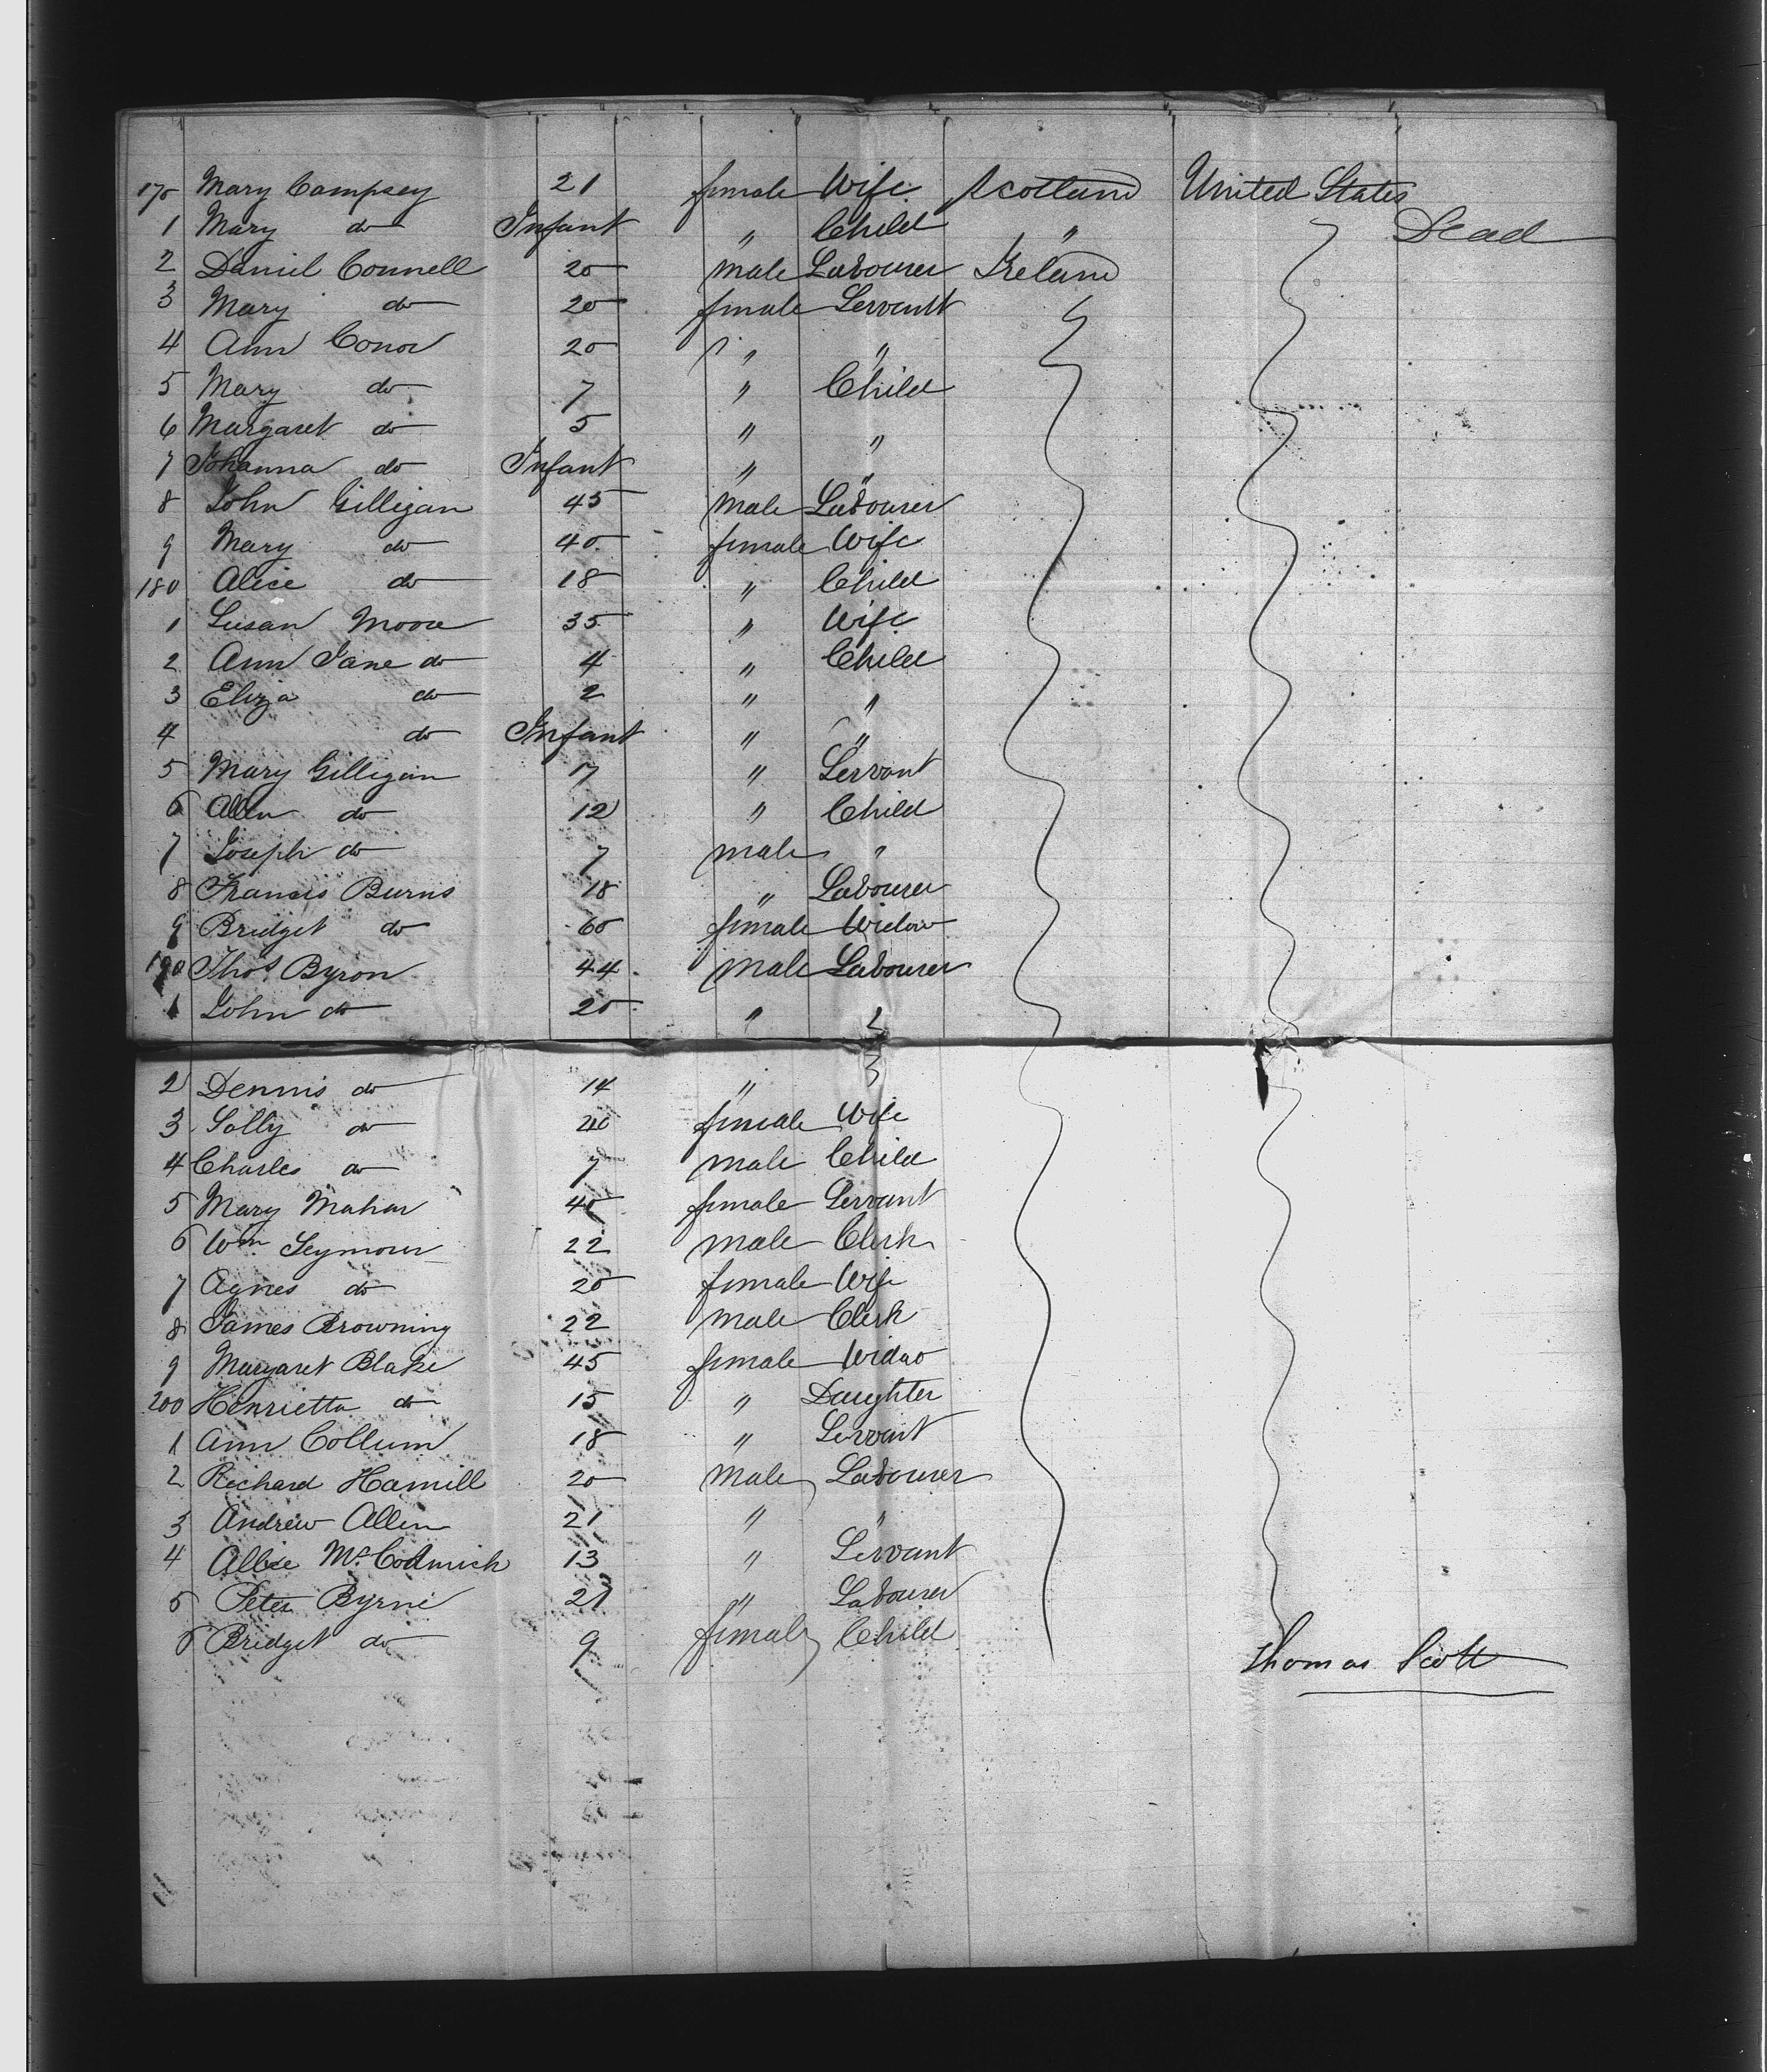 170 Mary Campsey 21 female Wife Scotland United States
1 Mary do Infant " Child " Dead
2 Daniel Connell 20 male Labourer Ireland
3 Mary do 20 female Servant
4 Ann Conor 20 " "
5 Mary do 7 " Child
6 Margaret do 5 " "
7 Johanna do Infant " "
8 John Gilligan 45 male Labourer
9 Mary do 40 female Wife
180 Alice do 18 " Child
1 Susan Moore 35 " Wife
2 Ann Jane do 4 " Child
3 Eliza do 2 " "
4 do Infant " "
5 Mary Gilligan 17 " Servant
6 Allen do 12 " Child
7 Joseph do 7 male "
8 Francis Burns 18 " Labourer
9 Bridget do 60 female Widow
190 Thos Byron 44 male Labourer
1 John do 20 "
2 Dennis do 14 "
3 Sally do 40 female Wife
4 Charles do 7 male Child
5 Mary Mahar 40 female Servant
6 Wm. Seymour 22 male Clerk
7 Agnes do 20 female Wife
8 James Browning 22 male Clerk
9 Margaret Blake 45 female Widao
200 Henrietta do 15 " Daughter
1 Ann Collum 18 " Servant
2 Richard Hamill 20 male Labourer
3 Andrew Allen 21 " "
4 Mc. 13 " Servant
5 Peter Byrne 21 " Labourer
6 Bridget do 9 female Child
Thomas Scott